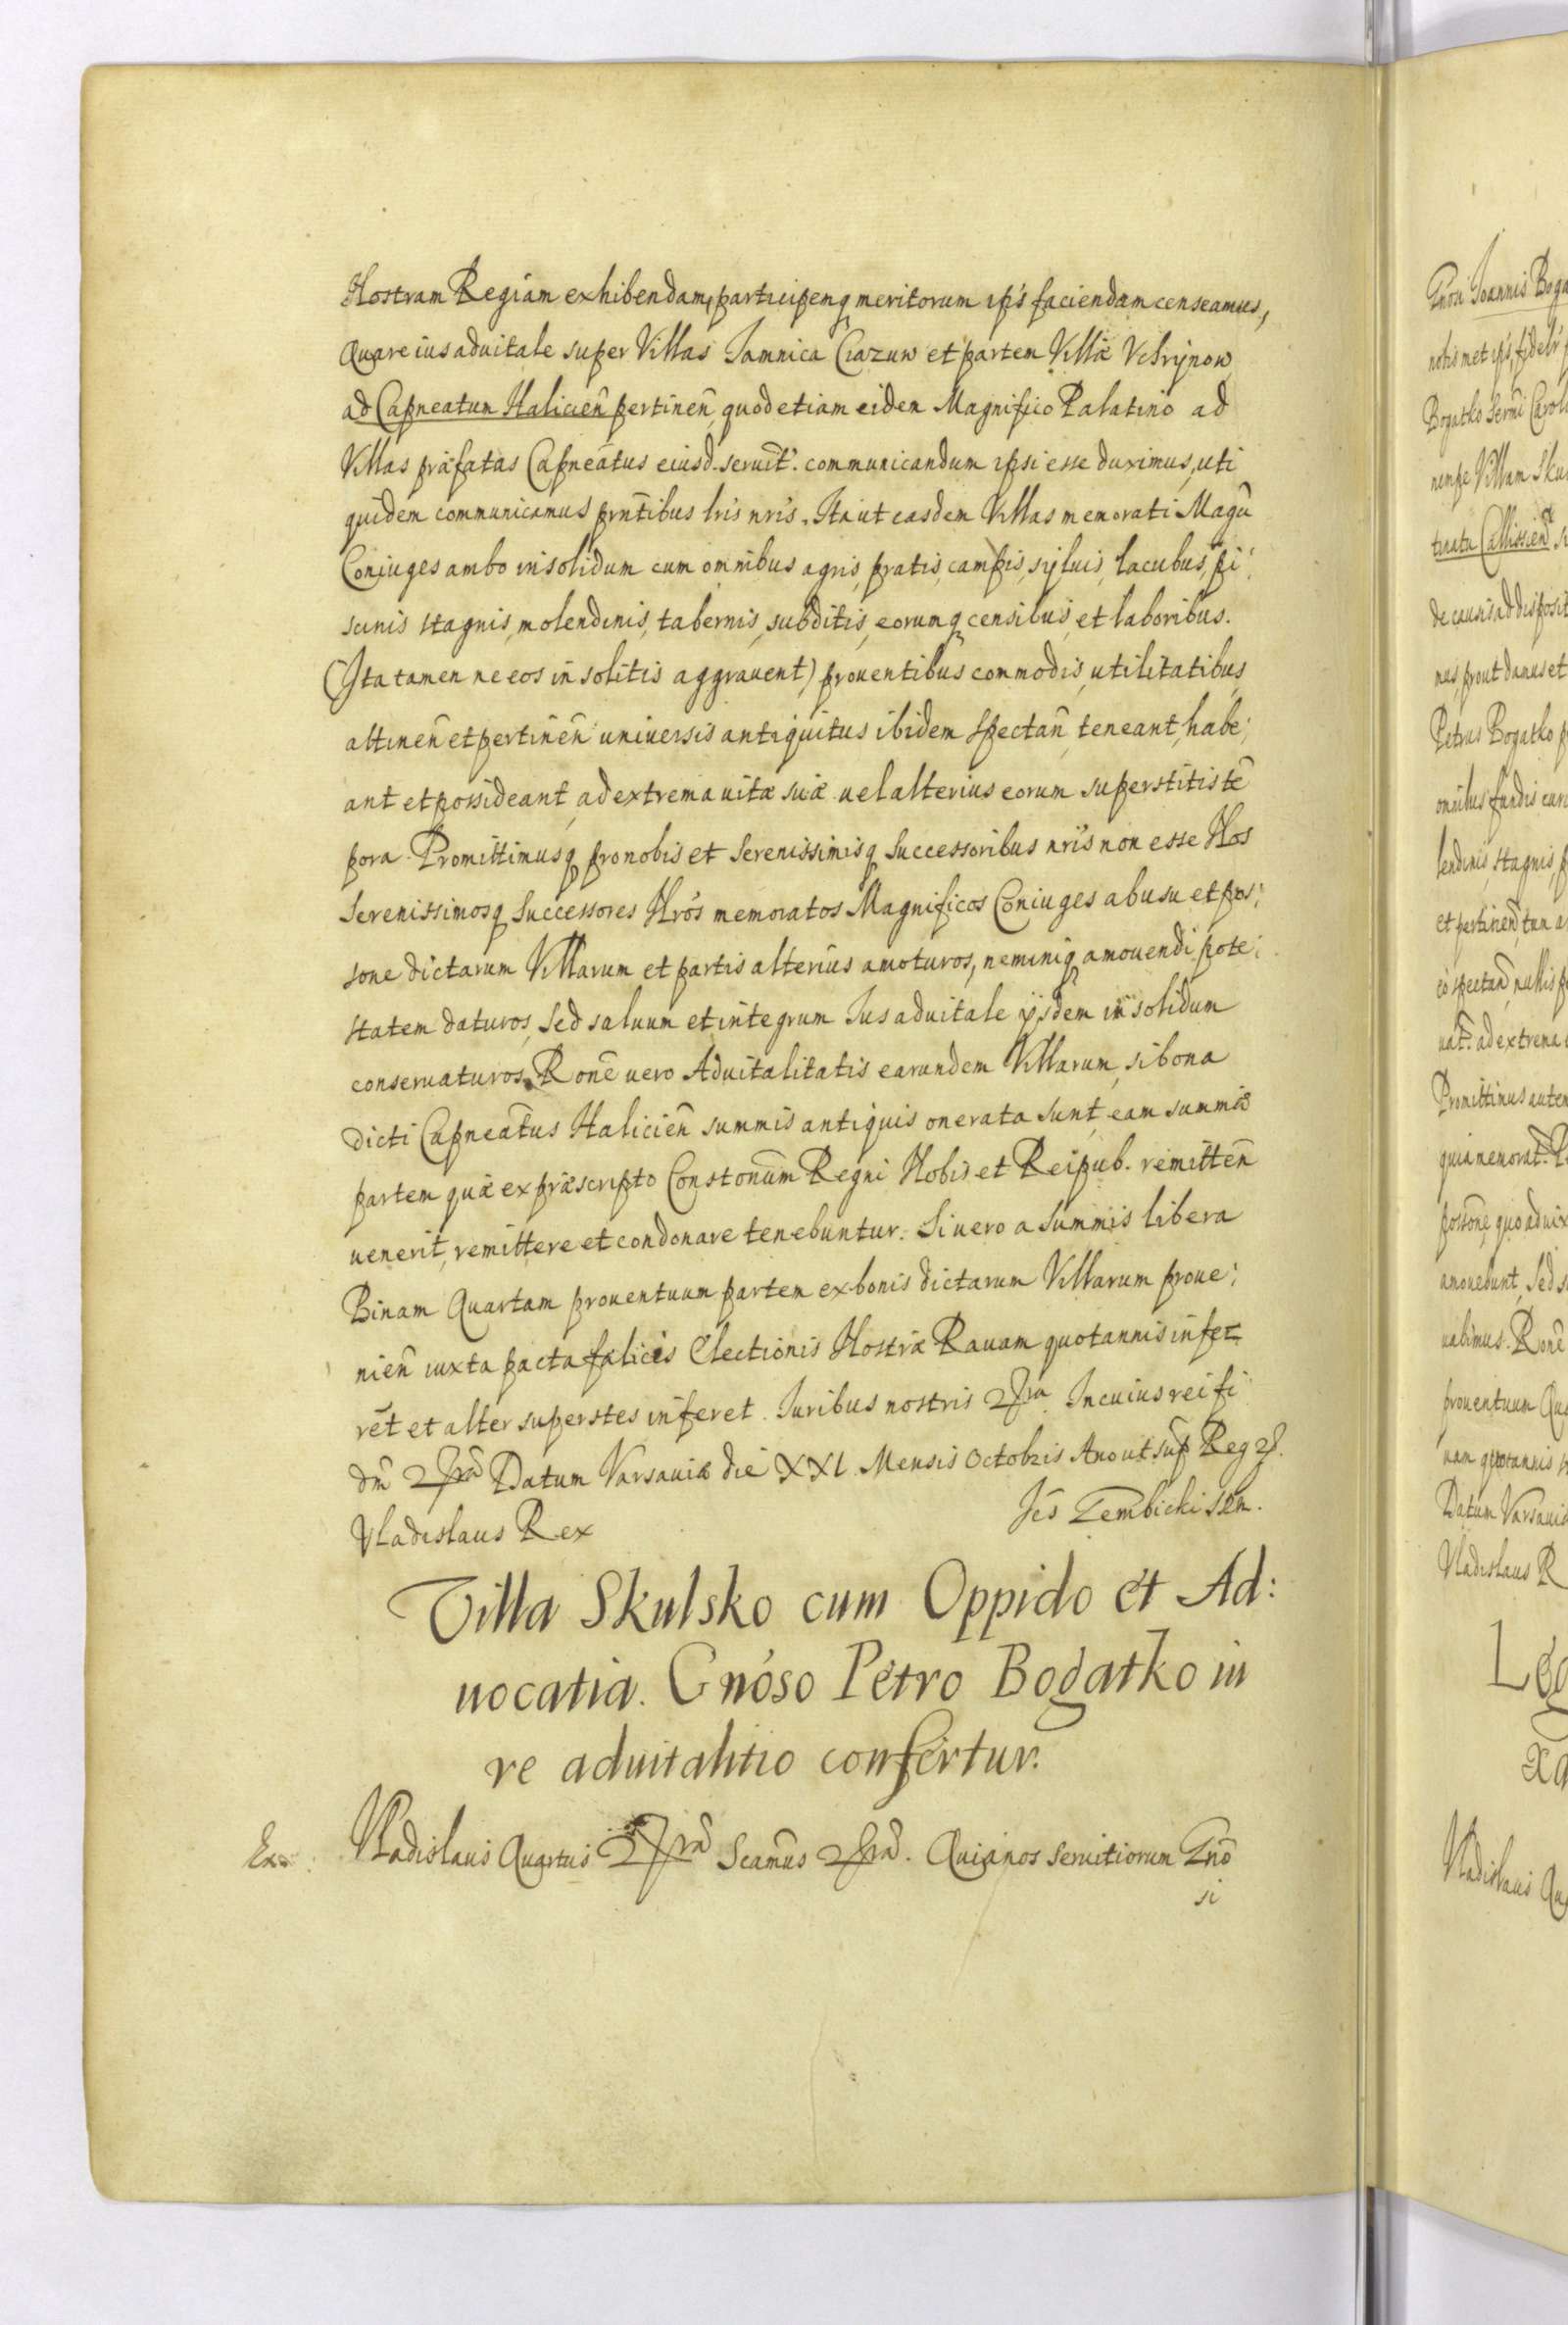 Nostram Regiam exhibendam, participemq meritorum ip̃s faciendam censeamus,
Quare ius aduitale super Villas Jamnica Ciazuw et partem Villæ Vchrynow
ad Capneatum Haliciem̃ pertinen̄, quod etiam eidem Magnifico Palatino ad
Villas præfatas Capneātus eiusd. seruit̃. communicandum ipsi esse duximus, uti
quidem communicamus prn̄tibus lris nris. Ita ut easdem Villas memorati Magn̄
Coniuges ambo insolidum cum omnibus agris, pratis, campis, syluis, lacubus, pi;
scinis stagnis, molendinis, tabernis, subditis, eorumq censibus, et laboribus.
(Ita tamen ne eos insolitis aggrauent) prouentibus commodis, utilitatibus,
attinen̄ et pertinen̄ uniuersis antiquitus ibidem spectan̄, teneant, habe;
ant et possideant, ad extrema uitæ suæ uel alterius eorum superstitis tē
pora. Promittimusq pro nobis et Serenissimisq Successoribus nris non esse Nos
Serenissimosq Successores Nros memoratos Magnificos Coniuges ab usu et pos;
sone dictarum Villarum et partis alterius amoturos, neminiq amouendi pote;
statem daturos, Sed saluum et integrum Ius aduitale ijsdem in solidum
conseruaturos. Ronē uero Aduitalitatis earundem Villarum, si bona
dicti Capneātus Halicien̄ summis antiquis onerata sunt, eam summæ
partem quæ ex præscripto Constonūm Regni Nobis et Reipub. remitten̄
uenerit, remittere et condonare tenebuntur. Si uero a Summis libera
Binam Quartam prouentuum partem ex bonis dictarum Villarum proue;
nien̄ iuxta pacta fælicis Electionis Nostræ Rauam quotannis infer
rēt et alter superstes inferet. Iuribus nostris In cuius rei fi
dm̄ Datum Varsauiæ die XXI. Mensis Octobris Ano ut sup̄ Reg
Vladislaus Rex
Jēs Gembicki
Villa Skulsko cum Oppido et Ad:
uocatia. Gnóso Petro Bogatko iu
re aduitalitio confertur.
Ex
Vladislaus Quartus Scamūs Quia nos seruitiorum Gnō
si
Gnōri Joannis Boga
nobismet ip̃s, fideli
Bogatko
nempe Villam Sku
tinatu Callissien̄
de causis ad disposit
mus, prout damus et
Petrus Bogatko p
omībus fundis
lendinis, stagnis, p
et pertinen̄, tum a
eo spectan̄, nullis
ad extrema
Promittimus autem
quia memorat̃.
possonē, quo aduix
amouebunt, Sed s
uabimus. Ronē
prouentuum Qua
uam quotannis
Datum Varsauiæ
Vladislaus R
Vladislaus Qu